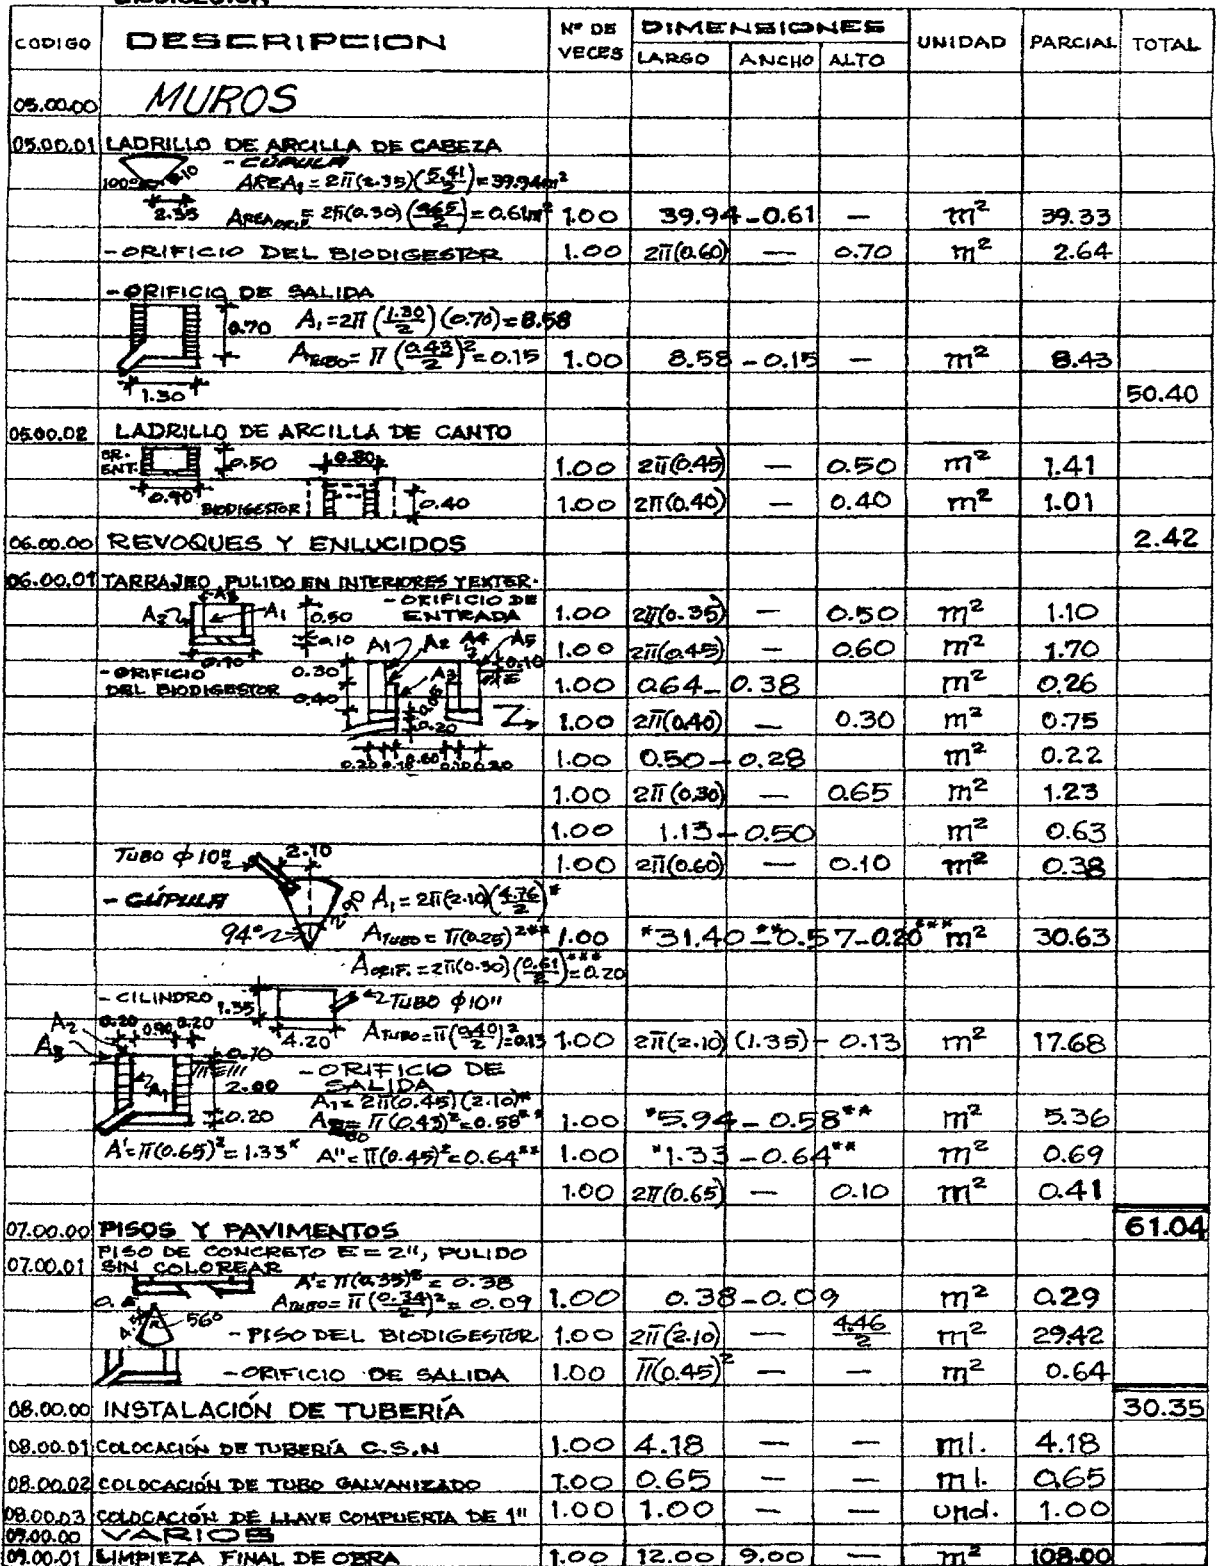 CODIGO DESCRIPCION Nº DE VECES DIMENSIONES LARGO ANCHO ALTO UNIDAD PARCIAL TOTAL
05.00.00 MUROS
05.00.01 LADRILLO DE ARCILLA DE CABEZA
- CÚPULA
100° 2.35 AREA₁ = 2π(2.35)(5.41/2) = 39.94m²
= 2π(0.30) = 0.61m² 1.00 39.94 - 0.61 — m² 39.33
- ORIFICIO DEL BIODIGESTOR 1.00 2π(0.60) — 0.70 m² 2.64
- ORIFICIO DE SALIDA
0.70 A₁ = 2π(1.30/2)(0.70) = 8.58
A TUBO = π(0.43/2)² = 0.15 1.00 8.58 - 0.15 — m² 8.43
1.30 50.40
05.00.02 LADRILLO DE ARCILLA DE CANTO
OR. ENT. 0.50 0.80 1.00 2π(0.45) — 0.50 m² 1.41
0.90 BIODIGESTOR 0.40 1.00 2π(0.40) — 0.40 m² 1.01
06.00.00 REVOQUES Y ENLUCIDOS 2.42
06.00.01 TARRAJEO PULIDO EN INTERIORES Y EXTER.
A₂ A₁ 0.50 - ORIFICIO DE ENTRADA 1.00 2π(0.35) — 0.50 m² 1.10
0.10 0.90 A1 A2 A4 A5 1.00 2π(0.45) — 0.60 m² 1.70
- ORIFICIO DEL BIODIGESTOR 0.30 0.40 A3 0.10 1.00 0.64 - 0.38 m² 0.26
0.20 1.00 2π(0.40) — 0.30 m² 0.75
0.20 0.60 0.10 0.20 1.00 0.50 - 0.28 m² 0.22
1.00 2π(0.30) — 0.65 m² 1.23
1.00 1.13 - 0.50 m² 0.63
TUBO ϕ 10" 2.10 1.00 2π(0.60) — 0.10 m² 0.38
- CÚPULA A₁ = 2π(2.10)(4.76/2)*
94° A TUBO = π(0.25)²** 1.00 *31.40 - **0.57 - 0.20*** m² 30.63
A ORIF. = 2π(0.30)(0.61/2)*** = 0.20
- CILINDRO 1.35 TUBO ϕ10"
A₂ 0.20 0.90 0.20 4.20 A TUBO = π(0.40/2)² = 0.13 1.00 2π(2.10) (1.35) - 0.13 m² 17.68
A₃ 0.10 - ORIFICIO DE SALIDA
A₁ 2.00 A₁ = 2π(0.45)(2.10)*
0.20 = π(0.43)² = 0.58** 1.00 *5.94 - 0.58** m² 5.36
A' = π(0.65)² = 1.33* A'' = π(0.45)² = 0.64** 1.00 *1.33 - 0.64** m² 0.69
1.00 2π(0.65) — 0.10 m² 0.41
07.00.00 PISOS Y PAVIMENTOS 61.04
07.00.01 PISO DE CONCRETO E = 2", PULIDO SIN COLOREAR
A' = π(0.35)² = 0.38
A TUBO = π(0.34/2)² = 0.09 1.00 0.38 - 0.09 m² 0.29
56° - PISO DEL BIODIGESTOR 1.00 2π(2.10) — 4.46/2 m² 29.42
- ORIFICIO DE SALIDA 1.00 π(0.45)² — — m² 0.64
08.00.00 INSTALACIÓN DE TUBERÍA 30.35
08.00.01 COLOCACIÓN DE TUBERÍA C.S.N 1.00 4.18 — — ml. 4.18
08.00.02 COLOCACIÓN DE TUBO GALVANIZADO 1.00 0.65 — — ml. 0.65
08.00.03 COLOCACIÓN DE LLAVE COMPUERTA DE 1" 1.00 1.00 — — und. 1.00
09.00.00 VARIOS
09.00.01 LIMPIEZA FINAL DE OBRA 1.00 12.00 9.00 — m² 108.00